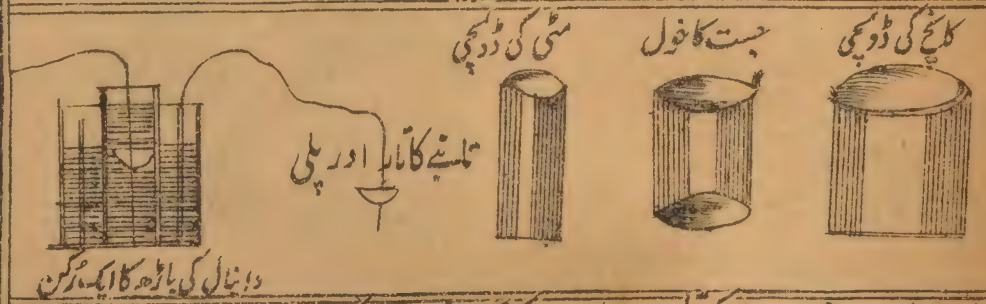 کانچ کی ڈولچی
جست کا خول
مٹی کی ڈولچی
تانبے کا تار اور پلی
دانیال کی باڑھ کا ایک رکن